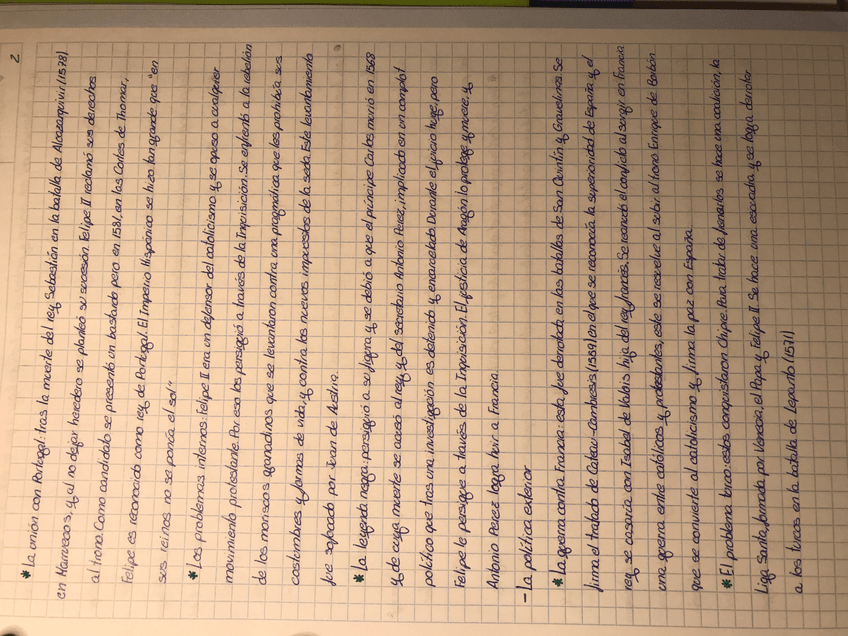 2
* La unión con Portugal: tras la muerte del rey Sebastián en la batalla de Alcazarquivir (1578)
en Marruecos, y al no dejar heredero se planteó su sucesión. Felipe II reclamó sus derechos
al trono. Como candidato se presentó un bastardo pero en 1581, en las Cortes de Thomar,
Felipe es reconocido como rey de Portugal. El Imperio Hispánico se hizo tan grande que "en
sus reinos no se ponía el sol"
* Los problemas internos: Felipe II era un defensor del catolicismo y se opuso a cualquier
movimiento protestante. Por eso los persiguió a través de la Inquisición. Se enfrentó a la rebelión
de los moriscos granadinos que se levantaron contra una pragmática que les prohibía sus
costumbres y formas de vida, y contra los nuevos impuestos de la seda. Este levantamiento
fue sofocado por Juan de Austria.
* La leyenda negra: persiguió a su figura y se debió a que el príncipe Carlos murió en 1568
y de cuya muerte se acusó al rey y del secretario Antonio Perez, implicado en un complot
político que tras una investigación es detenido y encarcelado. Durante el juicio huye, pero
Felipe le persigue a través de la Inquisición. El justicia de Aragón lo protege y muere, y
Antonio Perez logra huir a Francia.
- La política exterior
* La guerra contra Francia: ésta fue derrotada en las batallas de San Quintín y Gravelinas. Se
firma el tratado de Cateau-Cambresis (1559) en el que se reconocía la superioridad de España y el
rey se casaría con Isabel de Valois hija del rey francés. Se reanudó el conflicto al surgir en Francia
una guerra entre católicos y protestantes, este se resuelve al subir al trono Enrique de Borbón
que se convierte al catolicismo y firma la paz con España.
* El problema turco: estos conquistaron Chipre. Para tratar de frenarlos se hace una coalición, la
Liga Santa, formada por Venecia, el Papa y Felipe II. Se hace una escuadra y se logra derrotar
a los turcos en la batalla de Lepanto (1571)